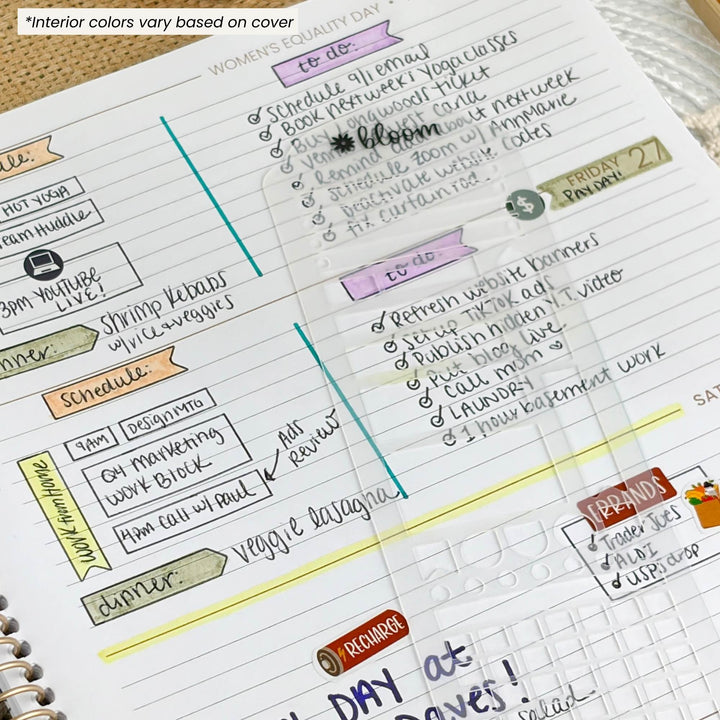 *Interior colors vary based on cover
WOMEN'S EQUALITY DAY •
to do:
Schedule 9/1 email
Book next week's yoga classes
Buy Longwoods ticket
card
bloom
Remind about next week
Schedule zoom w/ AnnMarie
Deactivate website codes
fix curtain rod
HOT YOGA
Team Huddle
3pm YOUTUBE
LIVE!
Shrimp Kebabs
w/rice + veggies
FRIDAY 27
$ PAYDAY!
to do:
Refresh website banners
Setup TikTok ads
Publish hidden Y.T. video
Put blog live
Call mom
LAUNDRY
1 hour basement work
schedule:
9AM
Design MTG
Q4 marketing
work block
Ads
Review
4pm call w/ Paul
work from home
dinner:
veggie lasagna
SAT
ERRANDS
Trader Joes
ALDI
USPS drop
RECHARGE
DAY at
Salad